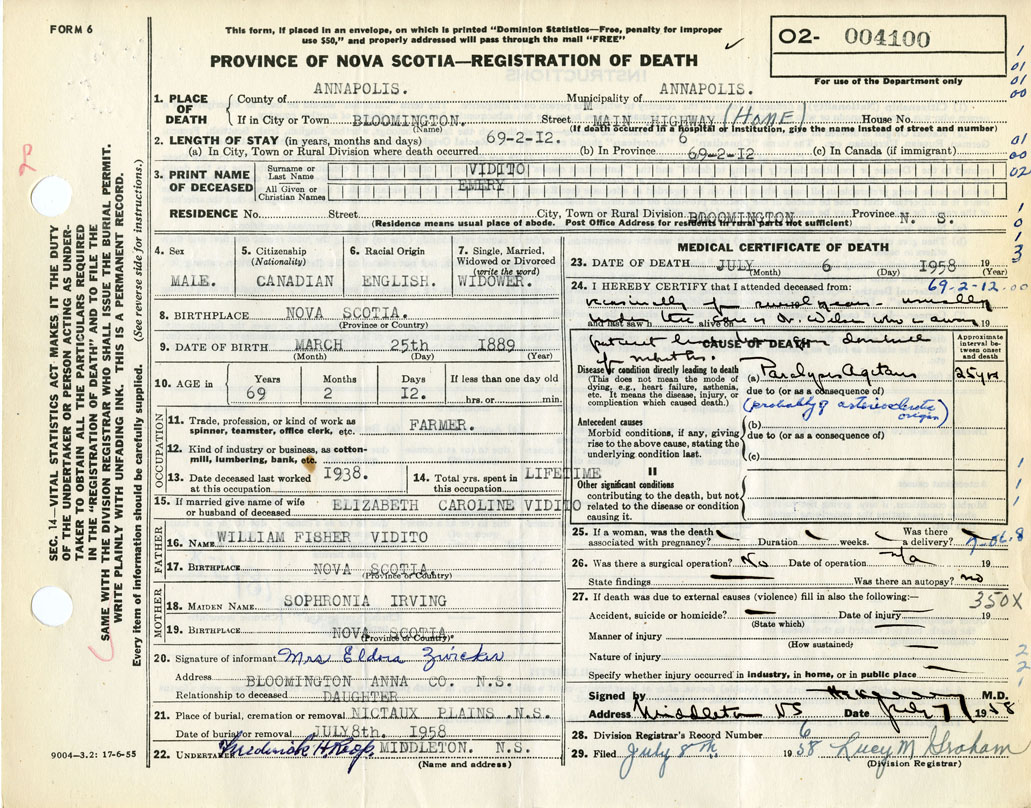 FORM 6
This form, if placed in an envelope, on which is printed "Dominion Statistics—Free, penalty for improper
use $50," and properly addressed will pass through the mail "FREE"
O2- 004100
For use of the Department only
PROVINCE OF NOVA SCOTIA—REGISTRATION OF DEATH
1. PLACE OF DEATH
County of ANNAPOLIS. Municipality of ANNAPOLIS.
If in City or Town BLOOMINGTON. Street MAIN HIGHWAY (HOME) House No.
(Name) (If death occurred in a hospital or institution, give the name instead of street and number)
2. LENGTH OF STAY (in years, months and days)
(a) In City, Town or Rural Division where death occurred 69-2-12. (b) In Province 69-2-12 (c) In Canada (if immigrant)
3. PRINT NAME OF DECEASED
Surname or Last Name VIDITO
All Given or Christian Names EMERY
RESIDENCE No. Street City, Town or Rural Division BLOOMINGTON Province N. S.
(Residence means usual place of abode. Post Office Address for residents in rural parts not sufficient)
4. Sex MALE.
5. Citizenship (Nationality) CANADIAN
6. Racial Origin ENGLISH.
7. Single, Married, Widowed or Divorced (write the word) WIDOWER.
8. BIRTHPLACE NOVA SCOTIA.
(Province or Country)
9. DATE OF BIRTH MARCH 25th 1889
(Month) (Day) (Year)
10. AGE in Years 69 Months 2 Days I2. If less than one day old hrs. or min.
OCCUPATION
11. Trade, profession or kind of work as spinner, teamster, office clerk, etc. FARMER.
12. Kind of industry or business, as cotton-mill, lumbering, bank, etc.
13. Date deceased last worked at this occupation I938.
14. Total yrs. spent in this occupation LIFETIME
15. If married give name of wife or husband of deceased ELIZABETH CAROLINE VIDITO
FATHER
16. NAME WILLIAM FISHER VIDITO
17. BIRTHPLACE NOVA SCOTIA
(Province or Country)
MOTHER
18. MAIDEN NAME SOPHRONIA IRVING
19. BIRTHPLACE NOVA SCOTIA
(Province or Country)
20. Signature of informant Mrs Eldora Zwicker
Address BLOOMINGTON ANNA CO. N.S.
Relationship to deceased DAUGHTER
21. Place of burial, cremation or removal NICTAUX PLAINS .N.S.
Date of burial or removal JULY8th. I958
22. UNDERTAKER Frederick H. MIDDLETON. N.S.
(Name and address)
9004—3.2: 17-6-55
MEDICAL CERTIFICATE OF DEATH
23. DATE OF DEATH JULY 6 1958 19
(Month) (Day) (Year)
24. I HEREBY CERTIFY that I attended deceased from: 69-2-12
occasionally for several years - usually
under the care of Dr. Wilson who is away
and last saw h alive on 19
CAUSE OF DEATH
Approximate interval between onset and death
Disease or condition directly leading to death
(This does not mean the mode of dying, e.g., heart failure, asthenia, etc. It means the disease, injury, or complication which caused death.)
(a) Paralysis Agitans 25 yrs
due to (or as a consequence of)
(probably of arteriosclerotic origin)
Antecedent causes
Morbid conditions, if any, giving rise to the above cause, stating the underlying condition last.
(b)
due to (or as a consequence of)
(c)
II
Other significant conditions
contributing to the death, but not related to the disease or condition causing it.
25. If a woman, was the death associated with pregnancy? Duration weeks. Was there a delivery?
26. Was there a surgical operation? No Date of operation n/a 19
State findings Was there an autopsy? no
27. If death was due to external causes (violence) fill in also the following:—
350X
Accident, suicide or homicide? Date of injury 19
(State which)
Manner of injury
(How sustained)
Nature of injury
Specify whether injury occurred in industry, in home, or in public place
Signed by M.D.
Address Middleton NS Date July 7 1958
28. Division Registrar's Record Number 6
29. Filed July 8th 1958 Lucy M Graham
(Division Registrar)
SEC. 14—VITAL STATISTICS ACT MAKES IT THE DUTY
OF THE UNDERTAKER OR PERSON ACTING AS UNDER-
TAKER TO OBTAIN ALL THE PARTICULARS REQUIRED
IN THE "REGISTRATION OF DEATH" AND TO FILE THE
SAME WITH THE DIVISION REGISTRAR WHO SHALL ISSUE THE BURIAL PERMIT.
WRITE PLAINLY WITH UNFADING INK. THIS IS A PERMANENT RECORD.
Every item of information should be carefully supplied. (See reverse side for instructions.)